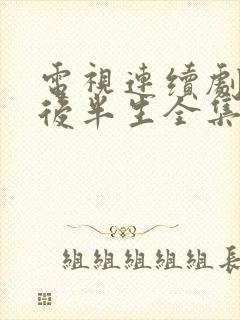 電視連續劇
後半生全集
組組組組組長